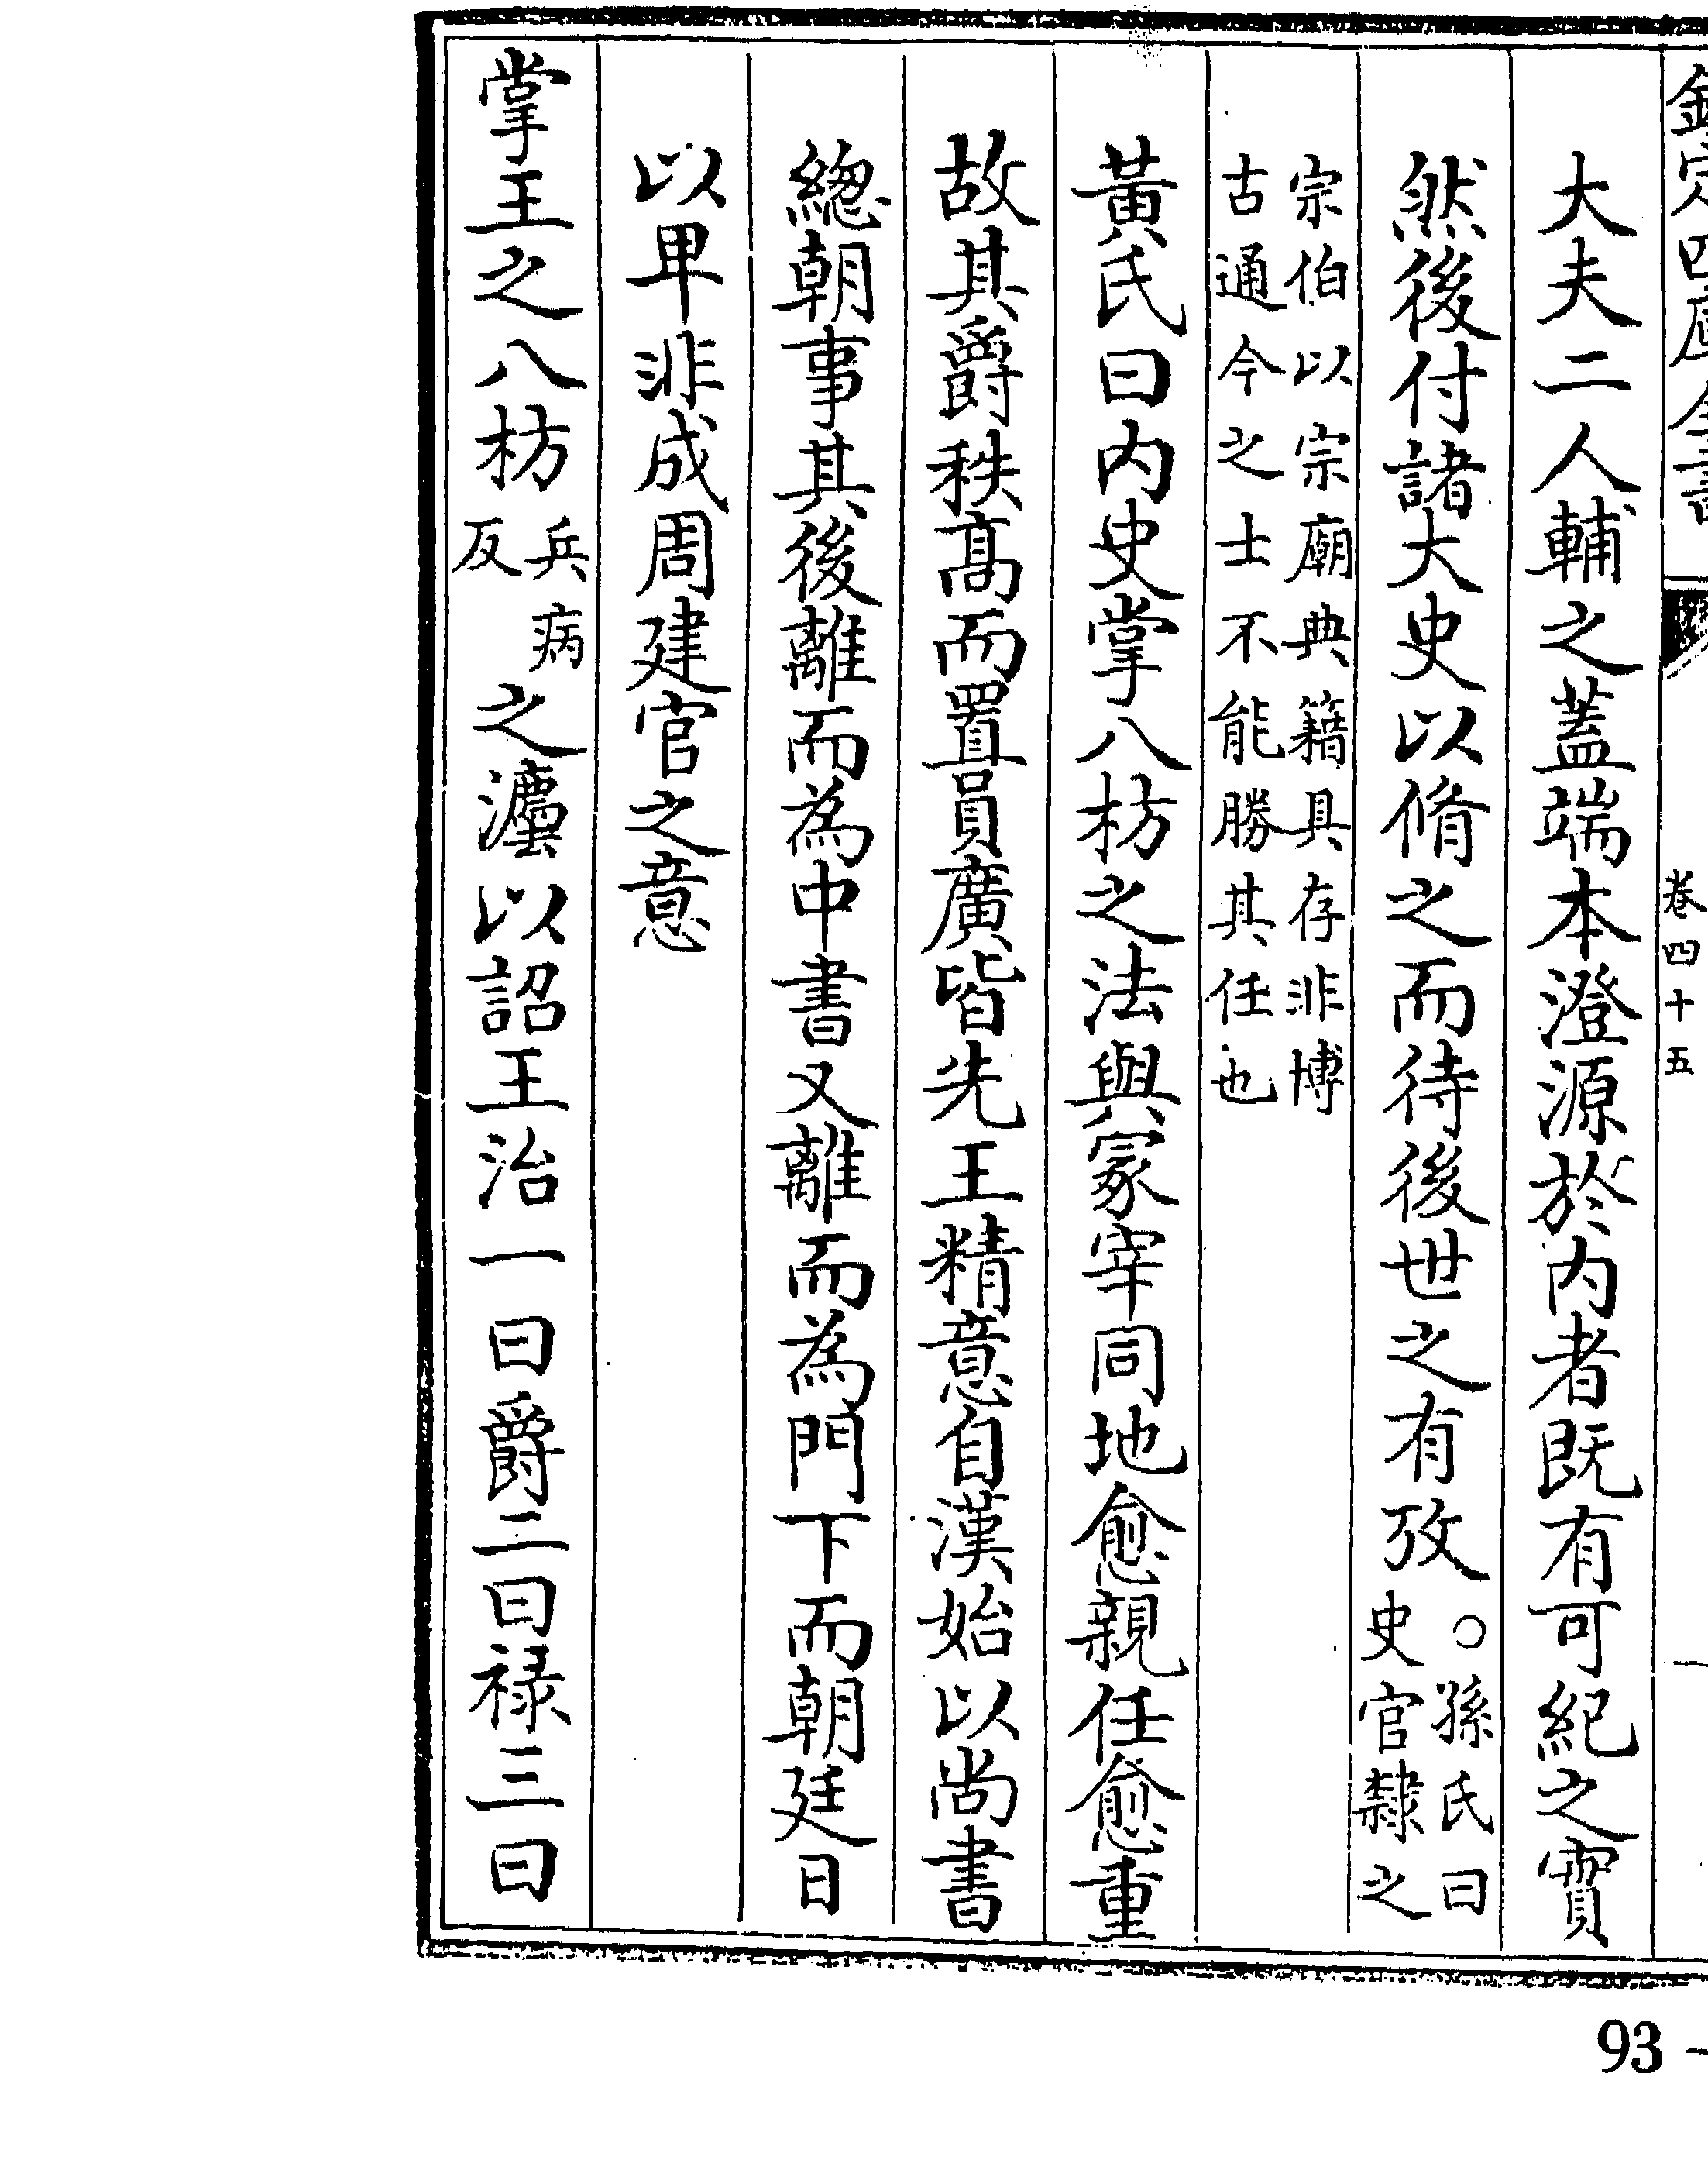 欽定四庫全書
卷四十五
大夫二人輔之蓋端本澄源於内者既有可紀之實
然後付諸大史以脩之而待後世之有攷○孫氏曰史官隸之
宗伯以宗廟典籍具存非博
古通今之士不能勝其任也
黃氏曰内史掌八枋之法與冡宰同地愈親任愈重
故其爵秩髙而置員廣皆先王精意自漢始以尚書
緫朝事其後離而為中書又離而為門下而朝廷日
以卑非成周建官之意
掌王之八枋兵病反之灋以詔王治一曰爵二曰禄三曰
93